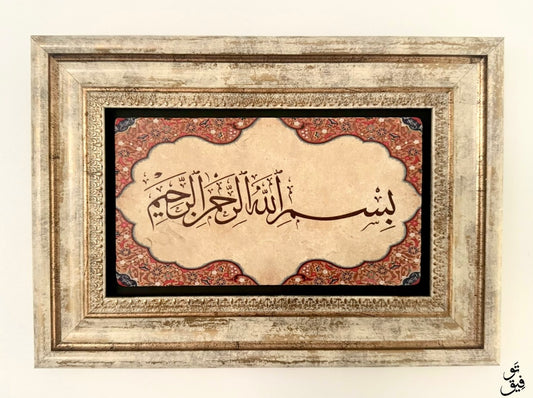 بِسْمِ ٱللَّهِ ٱلرَّحْمَٰنِ ٱلرَّحِيمِ
تَوفِيق